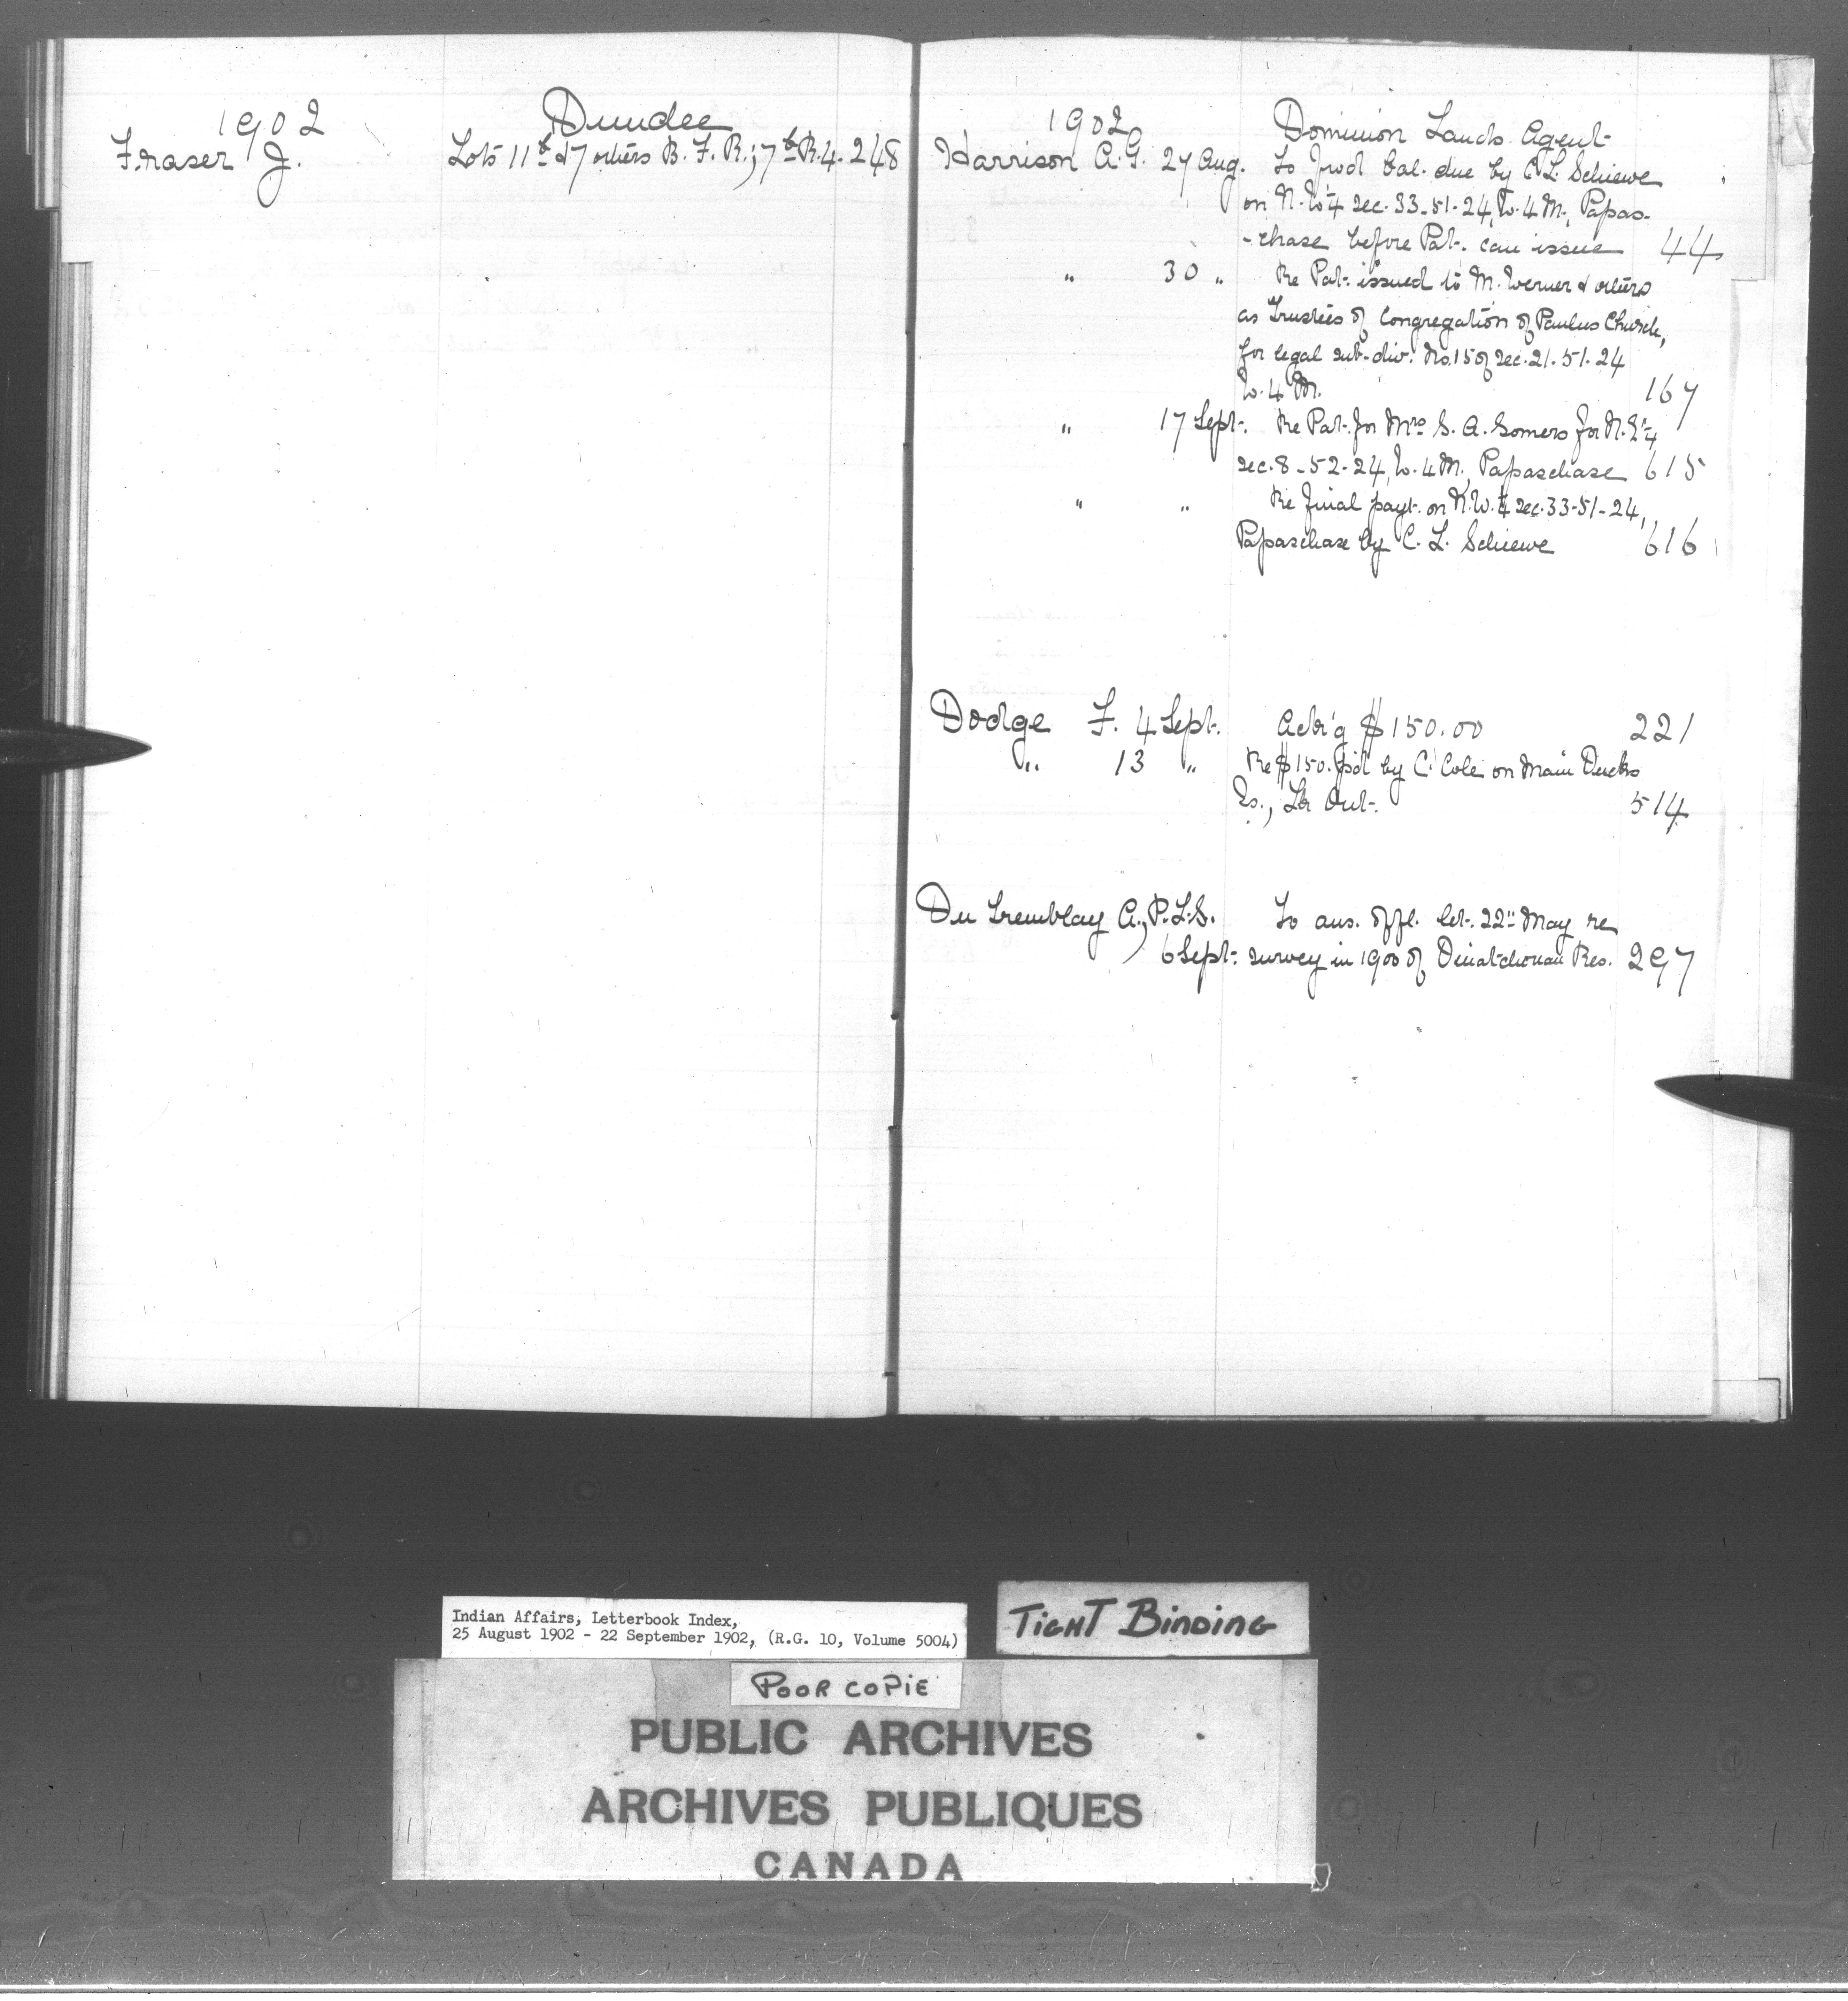 1902
Dundee
Fraser J. Lots 11b & 7 others B. F. R.; 7b R. 4. 248
1902
Dominion Lands Agent
Harrison A. G. 27 Aug. To fwd bal. due by C. L. Schiewe
on N.W¼ sec. 33-51-24, W. 4 M., Papas-
-chase before Pat. can issue 44
" 30 " Re Pat. issued to M. Werner & others
as Trustees of Congregation of Paulus Church,
for legal sub-div. No. 15 of sec. 21. 51. 24
W. 4 M. 167
" 17 Sept. Re Pat. for Mrs S. A. Somers for N.E¼
sec. 8-52-24, W. 4 M., Papaschase 615
" " Re final payt. on N.W.¼ sec. 33-51-24,
Papaschase by C. L. Schiewe 616
Dodge F. 4 Sept. Ack'g $150.00 221
" 13 " Re $150. p'd by C. Cole on Main Ducks
Is., Lk Ont. 514
Du Tremblay A., P.L.S. To ans. offl. let. 22" May re
6 Sept. survey in 1900 of Ouiatchouan Res. 297
Indian Affairs, Letterbook Index,
25 August 1902 - 22 September 1902, (R.G. 10, Volume 5004)
TIGHT BINDING
POOR COPIE
PUBLIC ARCHIVES
ARCHIVES PUBLIQUES
CANADA